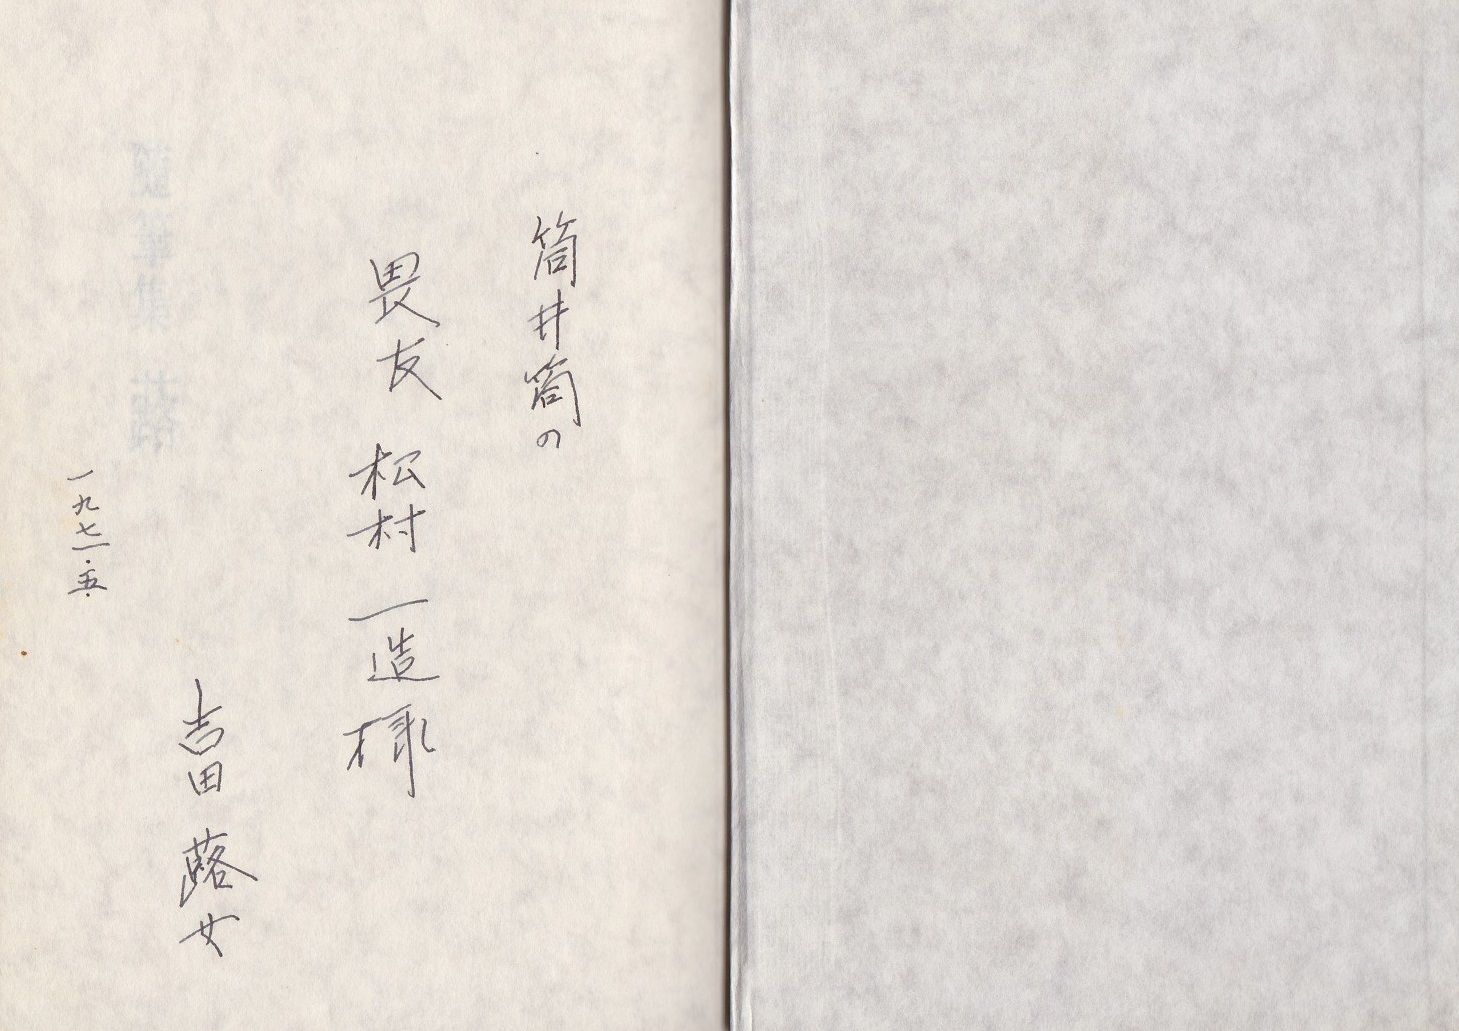 筒井筒の
畏友 松村 一造 様
吉田 蕗女
一九七一・五・